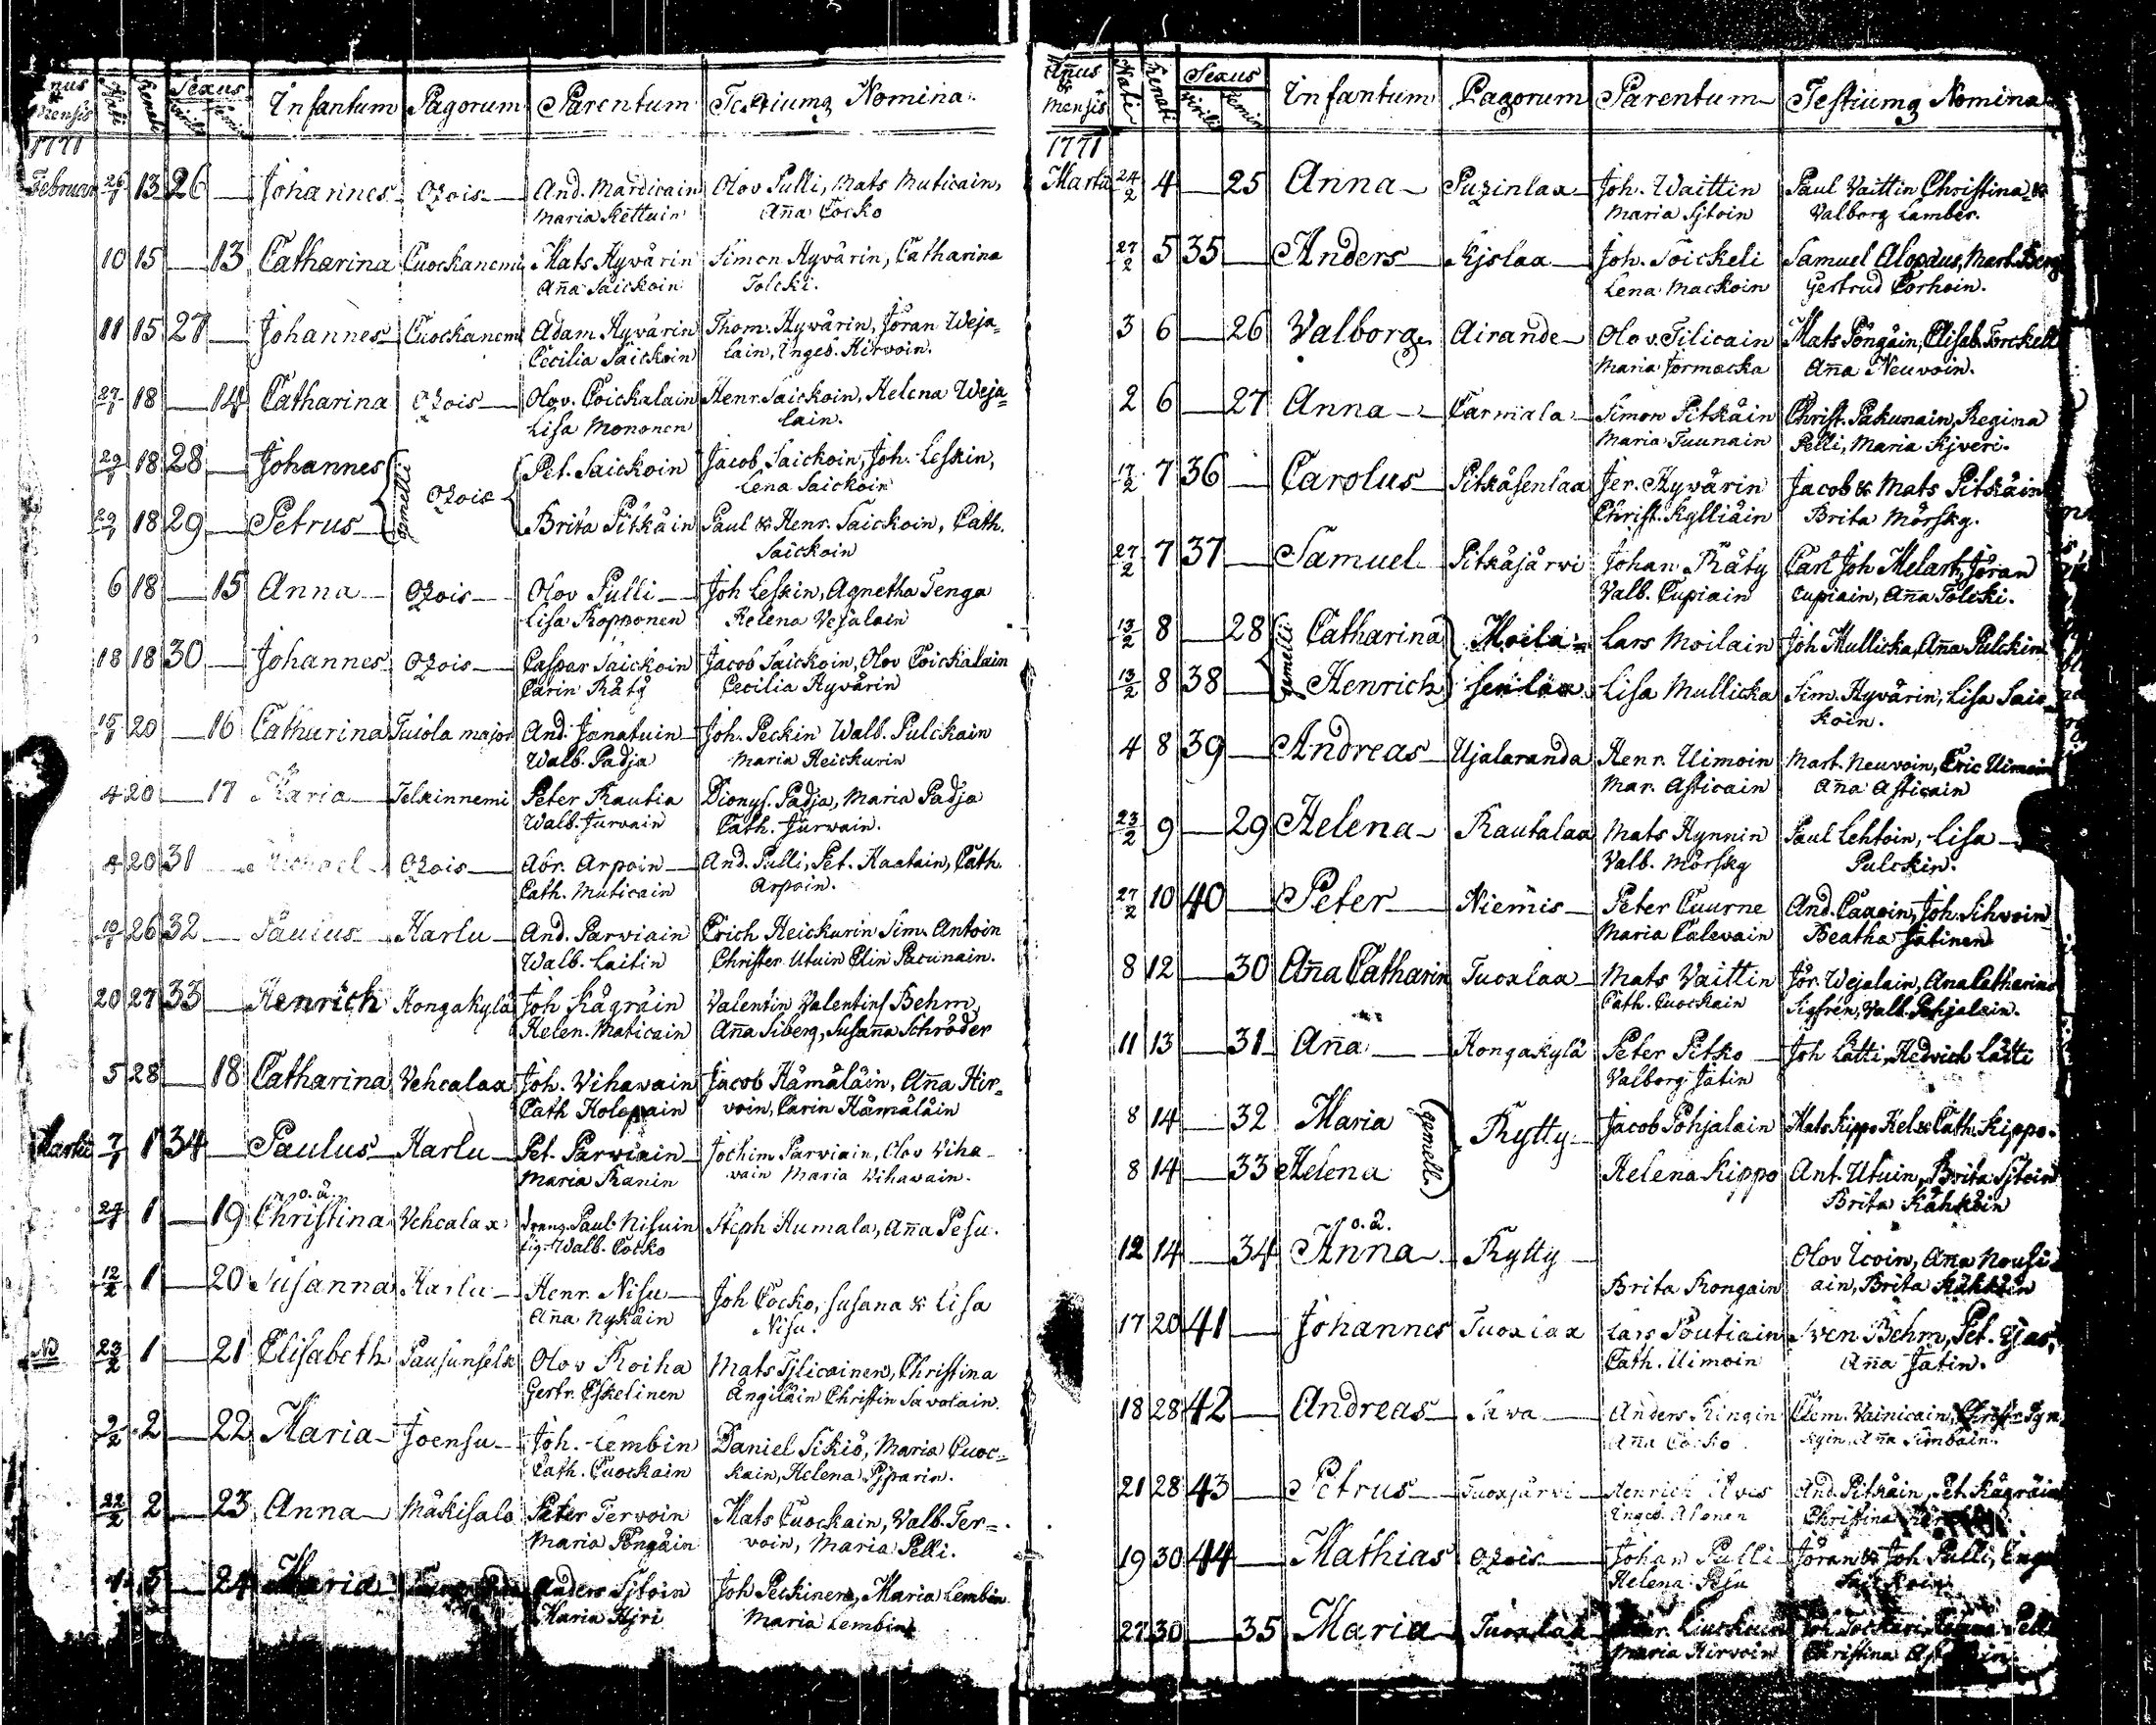 Annus & Mensis Nati Renati Sexus Virilis Femin. Infantum Pagorum Parentum Testiumq Nomina.
1771
Februar 26/1 13 26 — Johannes Ozois And. Mardicain Olov Pulli, Mats Muticain,
Maria Kettuin Aña Cocko
10 15 — 13 Catharina Cuockanemi Mats Hyvärin Simon Hyvärin, Catharina
Aña Saickoin Tolcki.
11 15 27 — Johannes Cuockanemi Adam Hyvärin Thom. Hyvärin, Jöran Weja=
Cecilia Saickoin lain, Ingeb. Hirvoin.
27/1 18 — 14 Catharina Ozois Olov. Coickalain Henr. Saickoin, Helena Weja=
Lisa Mononen lain.
29/1 18 28 — Johannes gemelli Ozois Pet. Saickoin Jacob Saickoin, Joh. Leskin,
Lena Saickoin
29/1 18 29 — Petrus Brita Pitkäin Paul & Henr. Saickoin, Cath.
Saickoin
6 18 — 15 Anna Ozois Olov Pulli Joh Leskin, Agnetha Tenga
Lisa Ropponen Helena Vejalain
18 18 30 — Johannes Ozois Caspar Saickoin Jacob Saickoin, Olov Coickalain
Carin Räty Cecilia Hyvärin
15/1 20 — 16 Catharina Tuiola major And. Janatuin Joh. Peckin Walb. Pulckain
Walb. Padja Maria Heickurin
4 20 — 17 Maria Telkinnemi Peter Rautia Dionys. Padja, Maria Padja
Walb. Jurvain Cath. Jurvain.
4 20 31 — Michael Ozois Abr. Arpoin And. Pulli, Pet. Haatain, Cath.
Cath. Muticain Arpoin.
19/1 26 32 — Paulus Harlu And. Parviain Erich Heickurin Sim. Antoin
Walb. Laitin Christer Utuin Elin Pacunain.
20 27 33 — Henrich Hongakylä Joh Kägräin Valentin Valentins Behm,
Helen. Maticain Aña Siberg, Susaña Schröder
5 28 — 18 Catharina Vehcalax Joh. Vihavain Jacob Hämäläin, Aña Hir-
Cath Holopain voin, Carin Hämäläin
Martii 7/1 1 34 — Paulus Harlu Pet. Parviain Jochim Parviain, Olov Viha-
Maria Ranin vain Maria Vihavain.
o. ä.
29/1 1 — 19 Christina Vehcalax dreng. Paul. Nisuin Steph Humala, Aña Pesu.
pig. Walb. Cocko
12/2 1 — 20 Susanna Harlu Henr. Nisu Joh Cocko, Susana & Lisa
Aña Nykäin Nisu.
NB 23/2 1 — 21 Elisabeth Pausunselk Olov Roiha Mats Tjlicainen, Christina
Gertr. Eskelinen Ängiläin Christin Savolain.
2/2 2 — 22 Maria Joensu Joh. Lembin Daniel Sikiö, Maria Cuoc=
Cath. Cuockain kain, Helena Pjparin.
22/2 2 — 23 Anna Mäkisalo Peter Tervoin Mats Cuockain, Valb. Ter=
Maria Pöngäin voin, Maria Pelli.
1 3 — 24 Maria Anders Sjtoin Joh Peckinen, Maria Lembin
Maria Hjri Maria Lembin
Añus & Mensis Nati Renati Sexus Virilis Femin Infantum Pagorum Parentum Testiumq Nomina
1771
Martii 24/2 4 — 25 Anna Puzinlax Joh. Waittin Paul Vaittin Christina &
Maria Sjtoin Valborg Lember.
27/2 5 35 — Anders Kjslax Joh. Toickeli Samuel Alopæus, Mart. Berg
Lena Mackoin Gertrud Corhoin.
3 6 — 26 Valborg Airande Olov. Tilicain Mats Pöngäin, Elisab. Torckell
Maria Jormacka Aña Neuvoin.
2 6 — 27 Anna Carmala Simon Pitkäin Christ. Pakunain, Regina
Maria Tuunain Pelli, Maria Kjveri.
17/2 7 36 — Carolus Pitkäsenlax Jer. Hyvärin Jacob & Mats Pitkäin
Christ. Kylliäin Brita Mörsky.
27/2 7 37 — Samuel Pitkäjärvi Johan Räty Carl Joh Melart, Jöran
Valb. Cupiain Cupiain, Aña Tolcki.
13/2 8 — 28 gemelli Catharina Moila= Lars Moilain Joh Mullicka, Aña Pulckin
13/2 8 38 — Henrich senlax Lisa Mullicka Sim. Hyvärin, Lisa Saic=
koin.
4 8 39 — Andreas Ujalaranda Henr. Uimoin Mart. Neuvoin, Eric Uimoin
Mar. Asticain Aña Asticain
23/2 9 — 29 Helena Rautalax Mats Hynnin Paul Lehtoin, Lisa
Valb. Mörsky Pulckin.
27/2 10 40 — Peter Niemis Peter Cuurne And. Caxoin, Joh. Sihvoin
Maria Calevain Beatha Jatinen
8 12 — 30 Aña Catharin Tuoxlax Mats Vaittin Jör. Wejalain, Ana Catharina
Cath. Cuockain Sigfren, Valb. Pohjalain.
11 13 — 31 Aña Hongakylä Peter Pitko Joh Lätti, Hedvich Lätti
Valborg Jatin
8 14 — 32 Maria gemell. Rytty Jacob Pohjalain Mats Kippo Hel. & Cath. Kippo.
8 14 — 33 Helena Helena Kippo Ant. Utuin, Brita Sjtoin
Brita Kähköin
o. ä.
12 14 — 34 Anna Rytty Olov Icoin, Aña Nousi
Brita Rongain ain, Brita Kähköin
17 20 41 — Johannes Tuoxlax Lars Poutiain Sven Behm, Pet.
Cath. Uimoin Aña Jatin.
18 28 42 — Andreas Sava Anders Ringin Clem. Vainicain,
Aña Cocko Aña Simbain.
21 28 43 — Petrus Tuoxjärvi Henrich And. Pitkäin, Pet. Kägräin
Ingeb. Christina
19 30 44 — Mathias Ozois Johan Pulli Jöran & Joh Pulli, Inge
Helena Pesu
27 30 — 35 Maria Tuoxlax Liuckuin Joh
Maria Hirvoin Christina